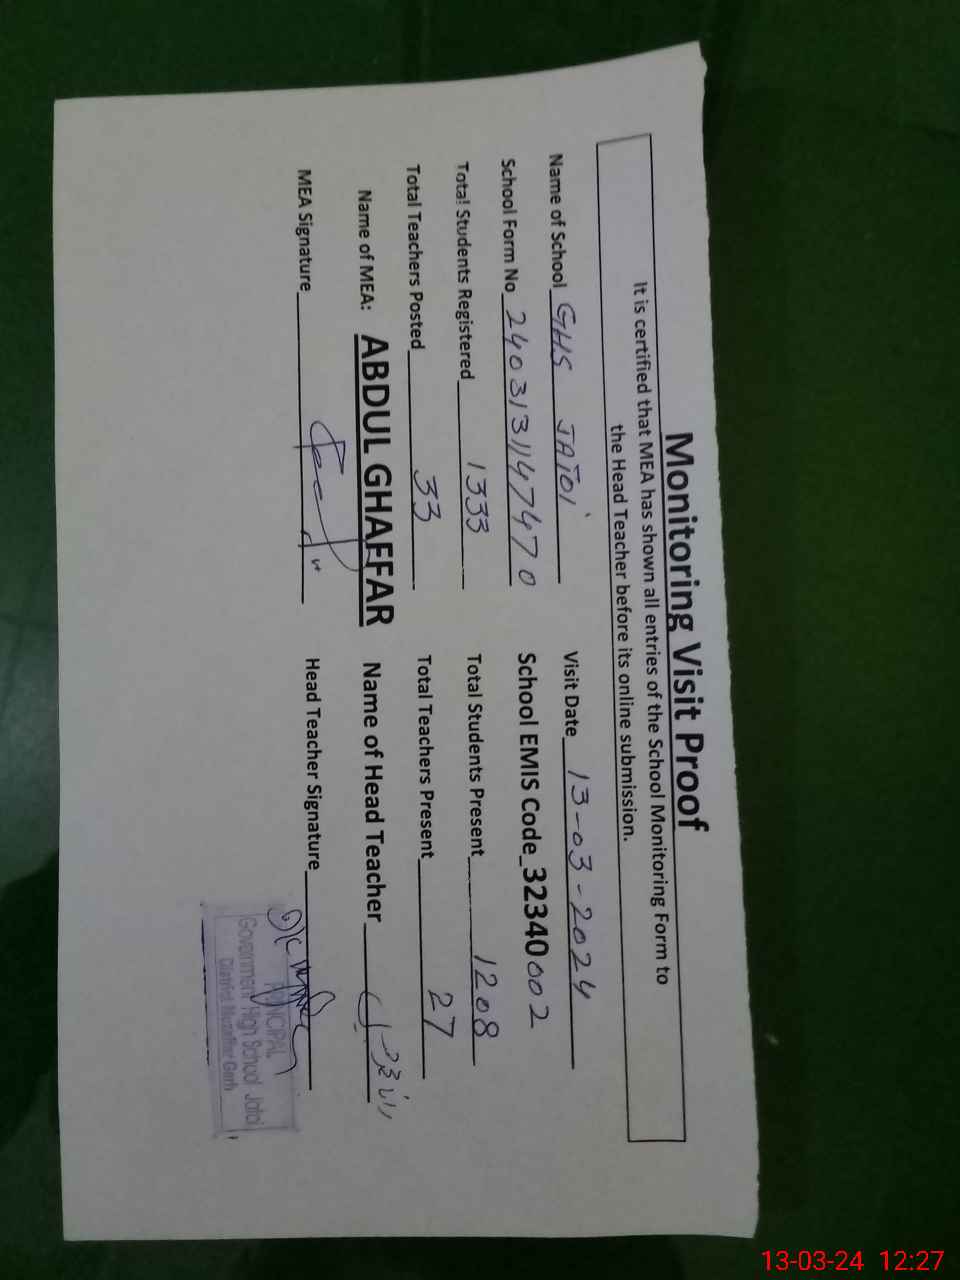 Monitoring Visit Proof
It is certified that MEA has shown all entries of the School Monitoring Form to
the Head Teacher before its online submission.
Name of School GHS JATOI Visit Date 13-03-2024
School Form No 2403131147470 School EMIS Code_32340002
Total Students Registered 1333 Total Students Present 1208
Total Teachers Posted 33 Total Teachers Present 27
Name of MEA: ABDUL GHAFFAR Name of Head Teacher
MEA Signature Head Teacher Signature
PRINCIPAL
Government High School Jatoi
District Muzaffar Garh
13-03-24 12:27